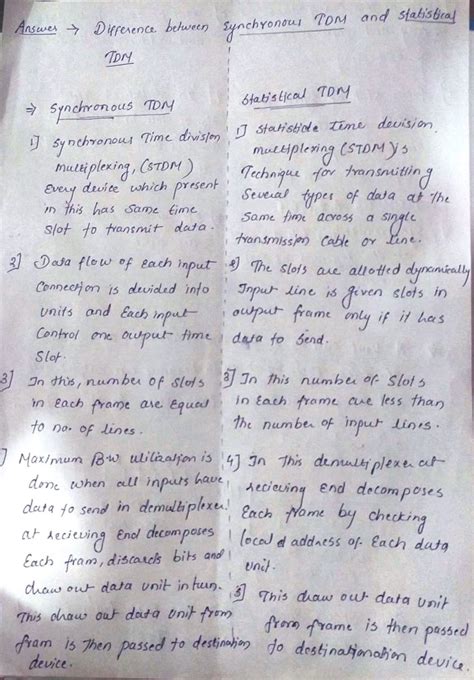 Answer → Difference between Synchronous TDM and Statistical
TDM
⇒ Synchronous TDM
1] Synchronous Time division
multiplexing, (STDM)
Every device which present
in this has same time
slot to transmit data.
2] Data flow of each input
connection is devided into
units and each input
control one output time
slot.
3] In this, number of slots
in each frame are equal
to no. of lines.
] Maximum B.W. utilization is
done when all inputs have
data to send in demultiplexer
at recieving end decomposes
Each fram, discards bits and
draw out data unit in turn.
This draw out data unit from
fram is then passed to destination
device.
Statistical TDM
1] Statistide time devision
multiplexing (STDM) is
Technique for transmitting
Several types of data at the
same time across a single
transmission cable or line.
2] The slots are allotted dynamically
Input line is given slots in
output frame only if it has
data to send.
3] In this number of slots
in each frame are less than
the number of input lines.
4] In this demultiplexer at
recieving end decomposes
Each frame by checking
local d address of each data
unit.
5] This draw out data unit
from frame is then passed
to destinationation device.